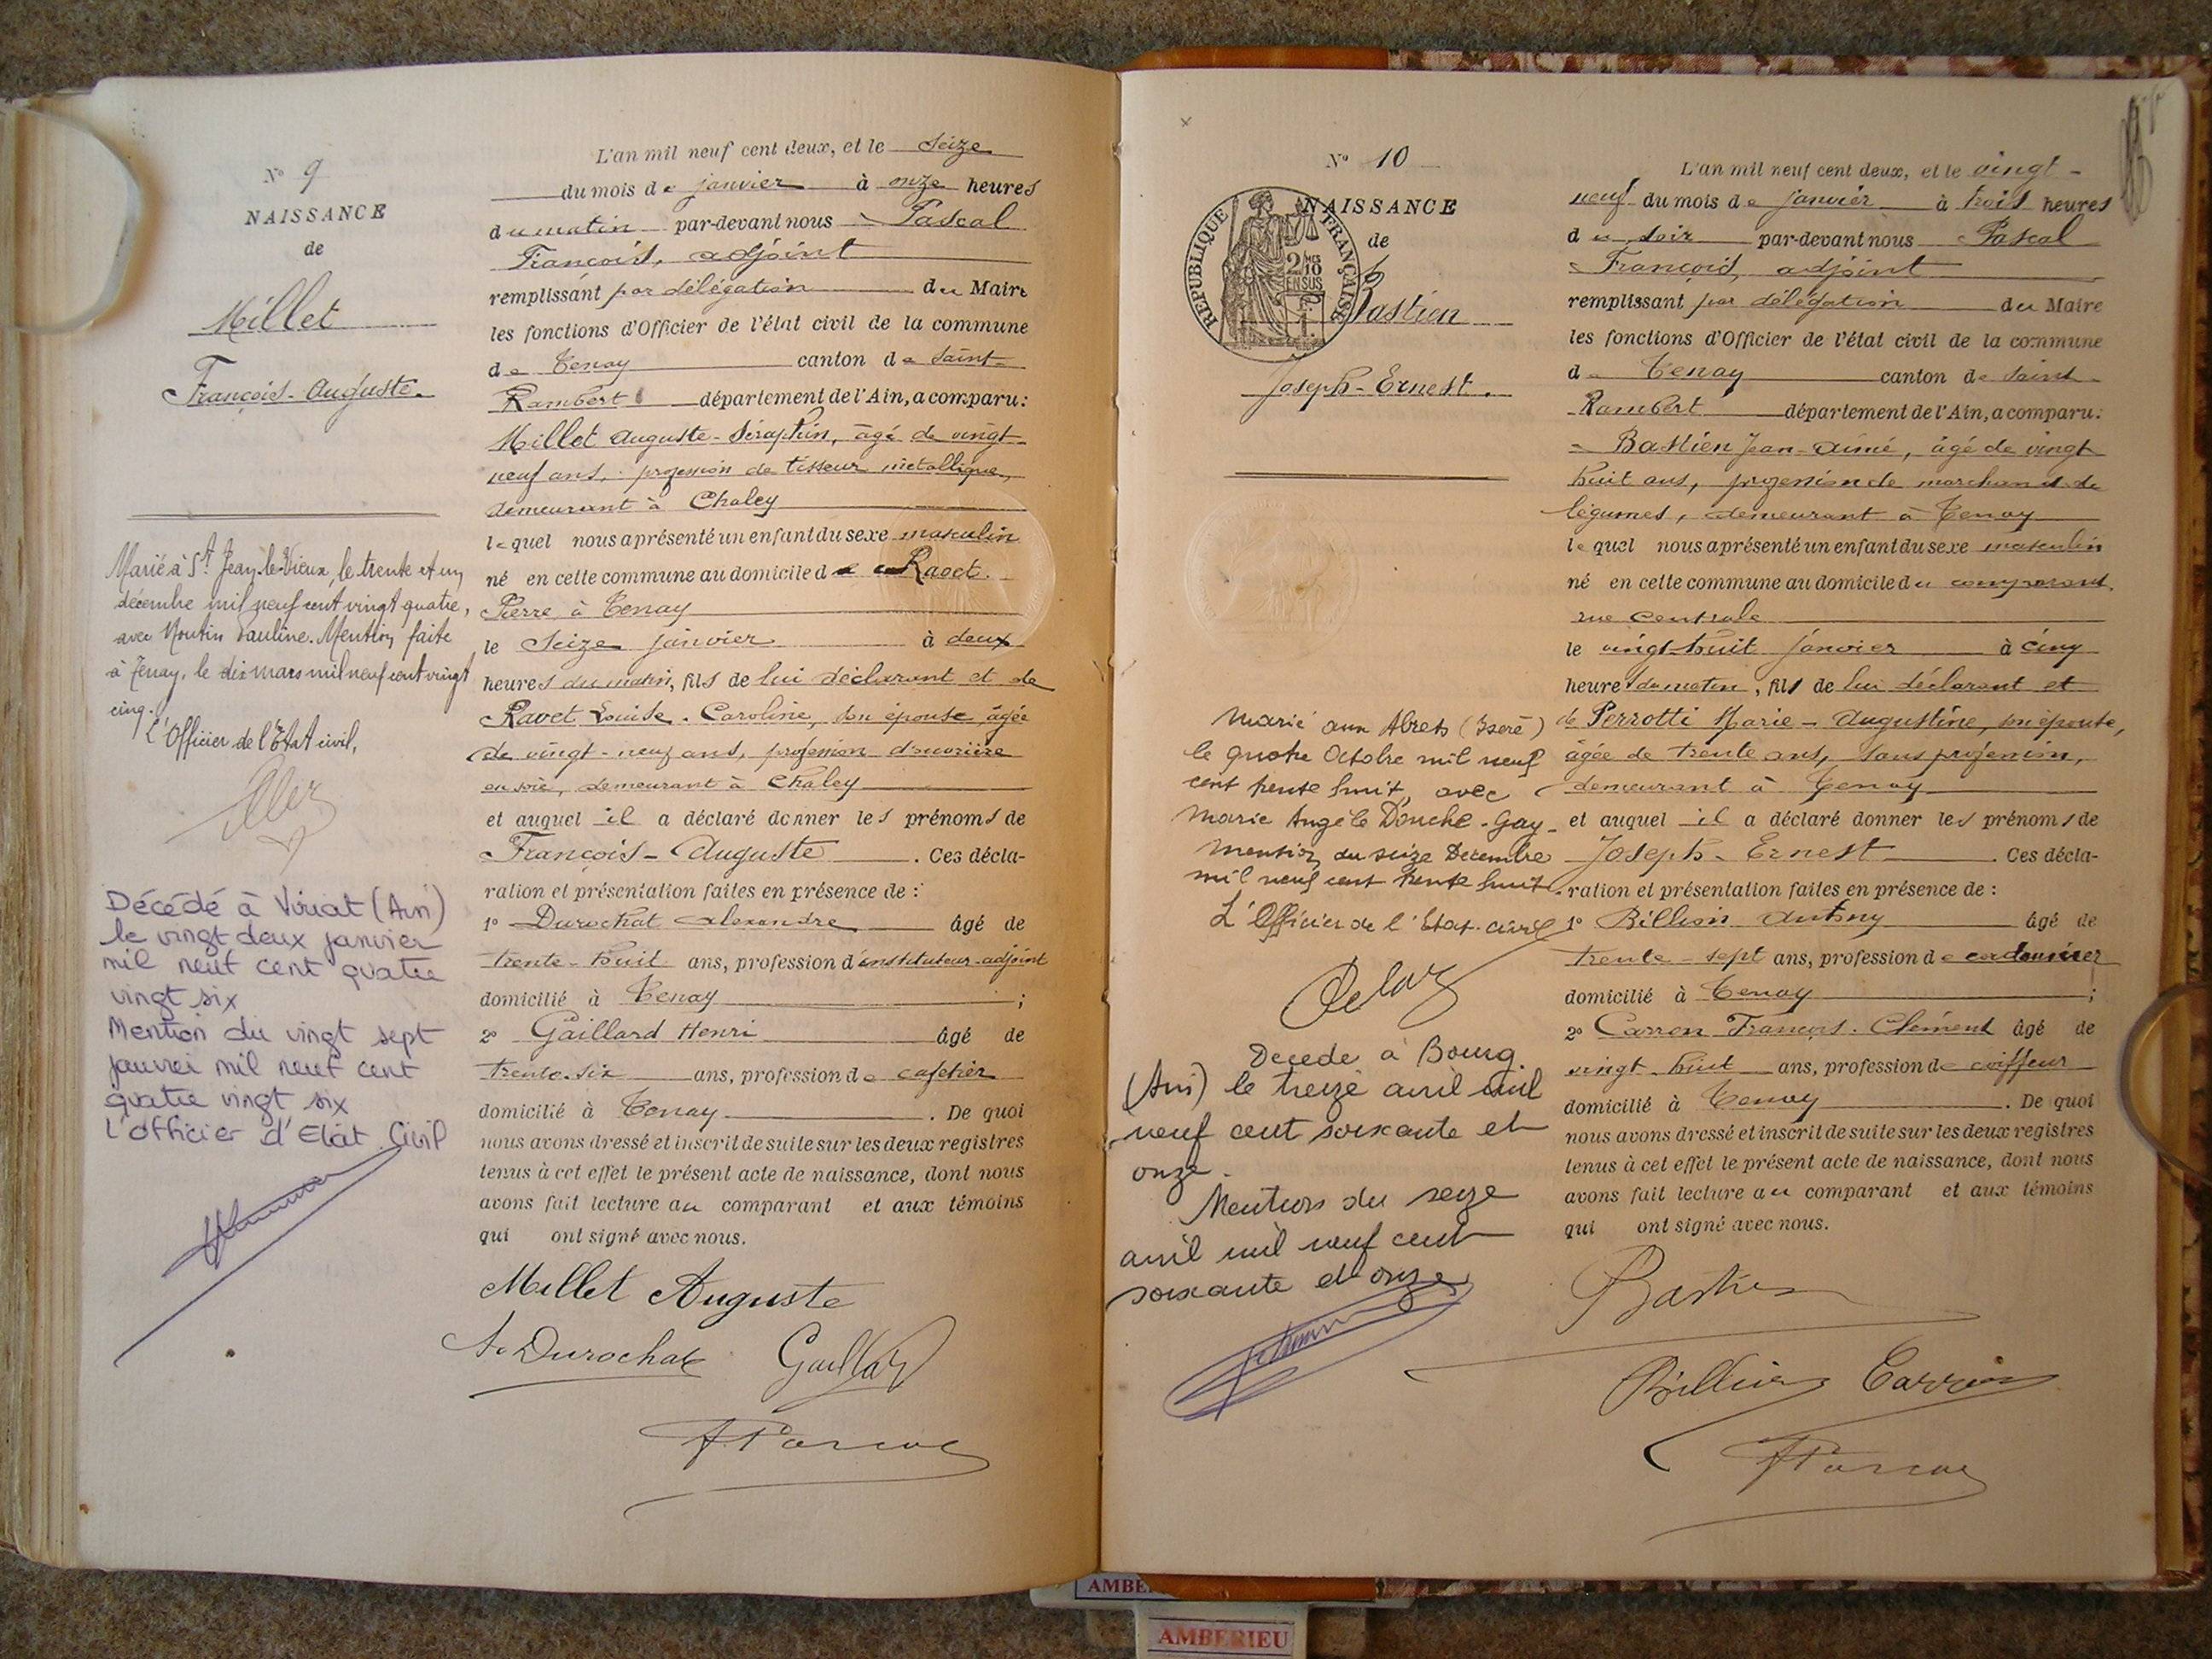 N° 9
NAISSANCE
de
Millet
François-Auguste.
Marié à St Jean-le-Vieux, le trente et un
décembre mil neuf cent vingt quatre,
avec Moutin Pauline. Mention faite
à Tenay, le dix mars mil neuf cent vingt
cinq.
L'Officier de l'Etat civil,
Décédé à Viriat (Ain)
le vingt deux janvier
mil neuf cent quatre
vingt six
Mention du vingt sept
janvier mil neuf cent
quatre vingt six
L'officier d'Etat Civil
L'an mil neuf cent deux, et le Seize
du mois de janvier à onze heures
du matin par-devant nous Pascal
François, adjoint
remplissant par délégation du Maire
les fonctions d'Officier de l'état civil de la commune
de Tenay canton de Saint-
Rambert département de l'Ain, a comparu:
Millet Auguste-Séraphin, âgé de vingt
neuf ans, profession de tisseur métallique,
demeurant à Chaley
lequel nous a présenté un enfant du sexe masculin
né en cette commune au domicile de Ravet
Pierre à Tenay
le Seize janvier à deux
heures du matin, fils de lui déclarant et de
Ravet Louise-Caroline, son épouse âgée
de vingt-neuf ans, profession d'ouvrière
en soie, demeurant à Chaley
et auquel il a déclaré donner les prénoms de
François-Auguste. Ces décla-
ration et présentation faites en présence de:
1° Durochat Alexandre âgé de
trente-huit ans, profession d'instituteur-adjoint
domicilié à Tenay;
2° Gaillard Henri âgé de
trente-six ans, profession de cafetier
domicilié à Tenay. De quoi
nous avons dressé et inscrit de suite sur les deux registres
tenus à cet effet le présent acte de naissance, dont nous
avons fait lecture au comparant et aux témoins
qui ont signé avec nous.
Millet Auguste
A. Durochat Gaillard
F Pascal
N° 10
NAISSANCE
de
REPUBLIQUE FRANÇAISE
2/10 EN SUS
Bastien
Joseph-Ernest.
Marié aux Abrets (Isère)
le quatre Octobre mil neuf
cent trente huit, avec
Marie Angèle Douche-Gay-
Mention du seize Décembre
mil neuf cent trente huit.
L'Officier de l'Etat-civil
Décédé à Bourg
(Ain) le treize avril mil
neuf cent soixante et
onze.
Mention du seize
avril mil neuf cent
soixante et onze
L'an mil neuf cent deux, et le vingt-
neuf du mois de janvier à trois heures
du soir par-devant nous Pascal
François, adjoint
remplissant par délégation du Maire
les fonctions d'Officier de l'état civil de la commune
de Tenay canton de Saint-
Rambert département de l'Ain, a comparu:
Bastien Jean-Aimé, âgé de vingt
huit ans, profession de marchand de
légumes, demeurant à Tenay
lequel nous a présenté un enfant du sexe masculin
né en cette commune au domicile du comparant,
rue Centrale
le vingt-huit janvier à cinq
heures du matin, fils de lui déclarant et
de Perrotti Marie-Augustine, son épouse,
âgée de trente ans, sans profession,
demeurant à Tenay
et auquel il a déclaré donner les prénoms de
Joseph-Ernest. Ces décla-
ration et présentation faites en présence de:
1° Billion Antony âgé de
trente-sept ans, profession de cordonnier
domicilié à Tenay;
2° Carron François-Clément âgé de
vingt-huit ans, profession de coiffeur
domicilié à Tenay. De quoi
nous avons dressé et inscrit de suite sur les deux registres
tenus à cet effet le présent acte de naissance, dont nous
avons fait lecture au comparant et aux témoins
qui ont signé avec nous.
Bastien
Billion Carron
F Pascal
AMBE
AMBERIEU